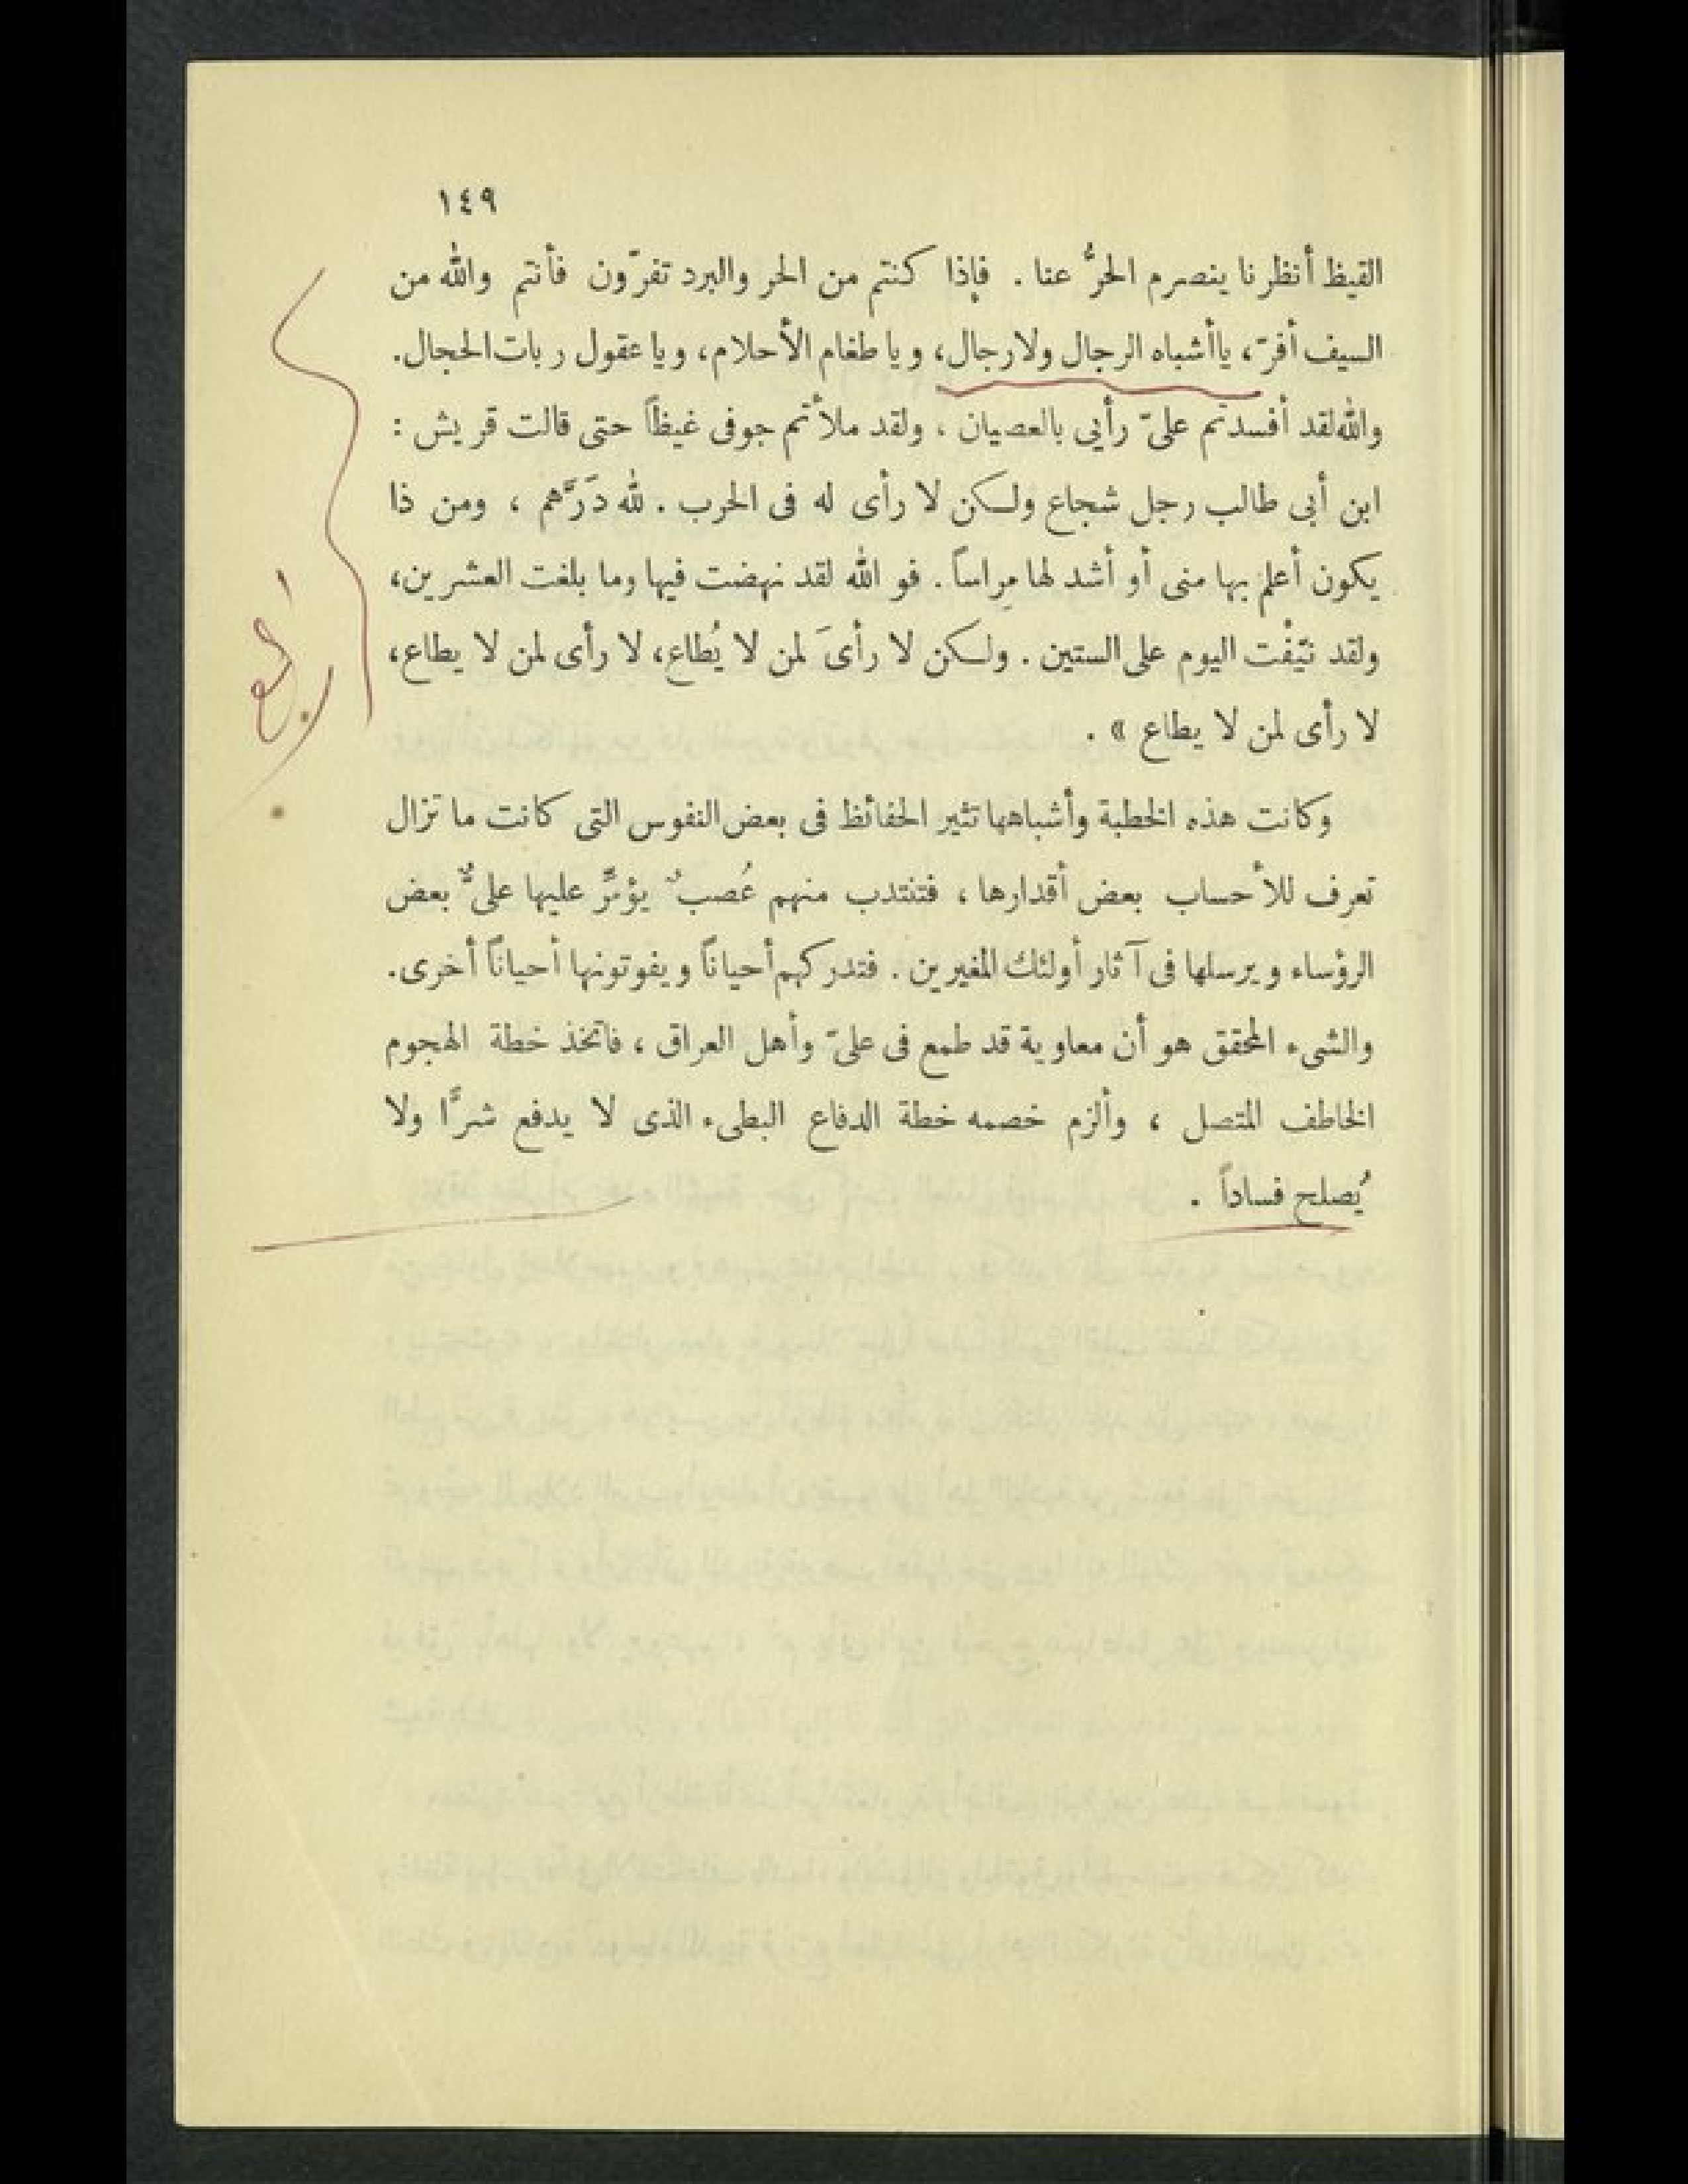 ١٤٩
القيظ أنظرنا ينصرم الحرُّ عنا . فإذا كنتم من الحر والبرد تفرّون فأنتم والله من
السيف أفرّ، ياأشباه الرجال ولارجال، ويا طغام الأحلام، ويا عقول ربات الحجال.
والله لقد أفسدتم علىّ رأيي بالعصيان ، ولقد ملأتم جوفى غيظاً حتى قالت قريش :
ابن أبى طالب رجل شجاع ولكن لا رأى له فى الحرب . لله دَرَّهم ، ومن ذا
يكون أعلم بها منى أو أشد لها مِراساً . فو الله لقد نهضت فيها وما بلغت العشرين،
ولقد نيّفْت اليوم على الستين . ولكن لا رأىَ لمن لا يُطاع، لا رأى لمن لا يطاع،
لا رأى لمن لا يطاع » .
وكانت هذه الخطبة وأشباهها تثير الحفائظ فى بعض النفوس التى كانت ما تزال
تعرف للأحساب بعض أقدارها ، فتنتدب منهم عُصبٌ يؤمِّر عليها علىٌّ بعض
الرؤساء ويرسلها فى آثار أولئك المغيرين . فتدركهم أحياناً ويفوتونها أحياناً أخرى.
والشىء المحقق هو أن معاوية قد طمع فى علىّ وأهل العراق ، فاتخذ خطة الهجوم
الخاطف المتصل ، وألزم خصمه خطة الدفاع البطىء الذى لا يدفع شرًّا ولا
يُصلح فساداً .